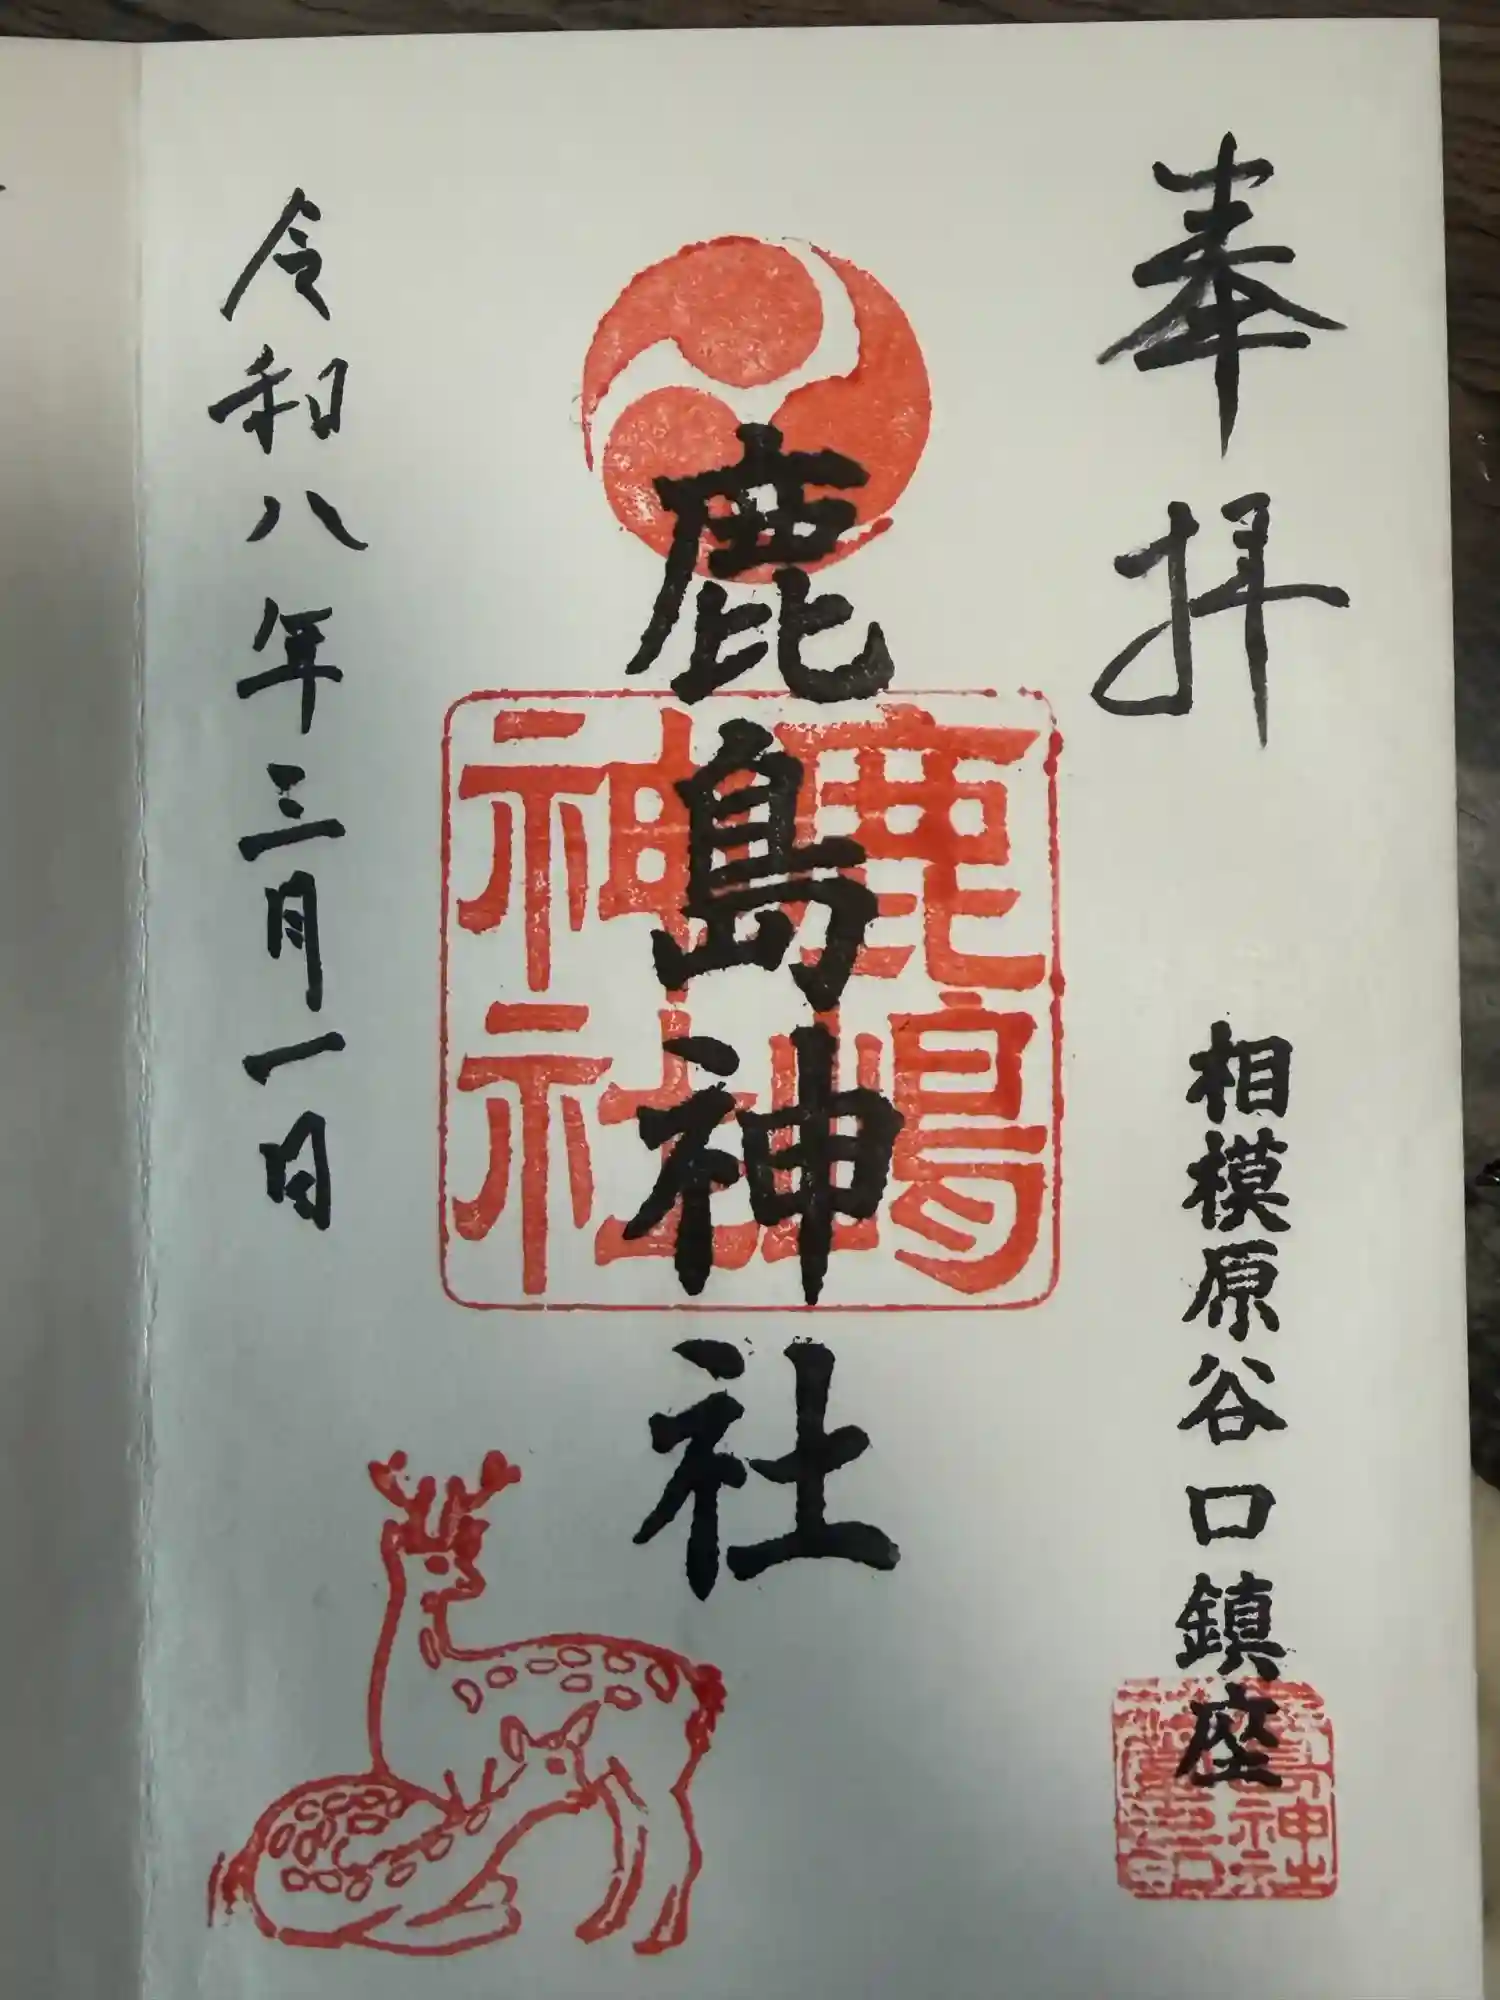 奉拝
相模原谷口鎮座
鹿島神社
鹿嶋神社
令和八年三月一日